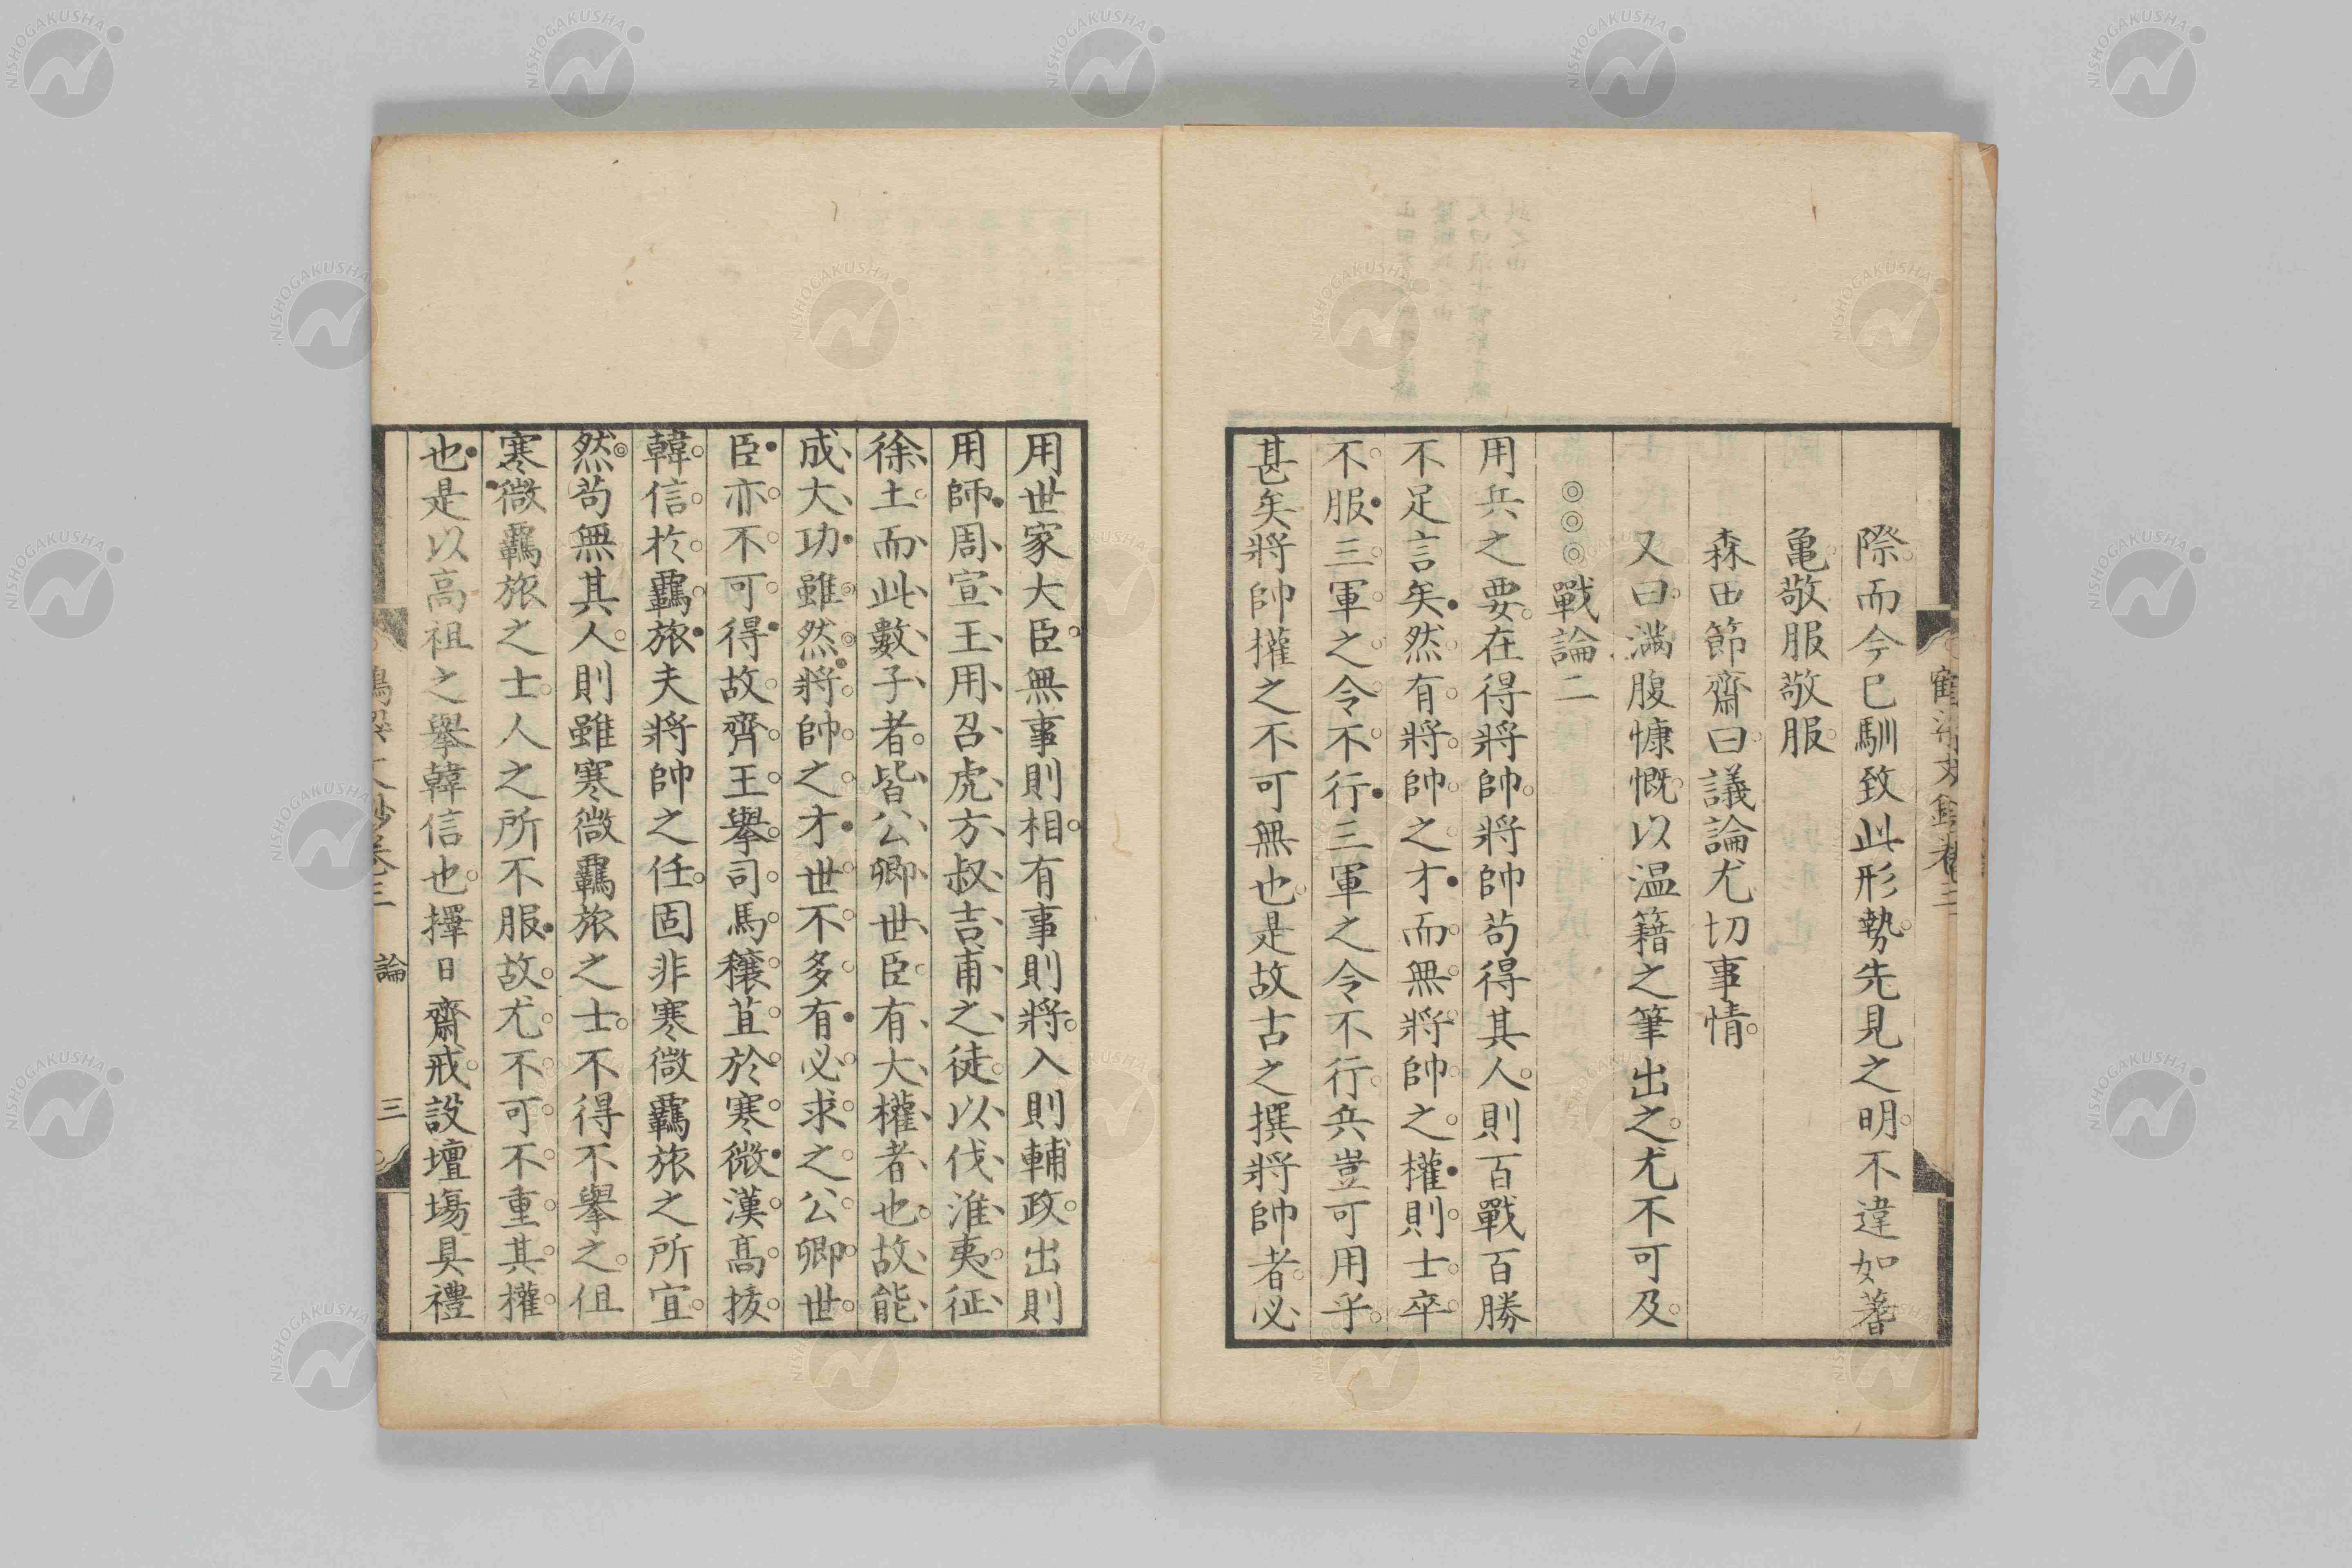 際而今已馴致此形勢先見之明不違如蓍
亀敬服敬服
森田節齋曰議論尤切事情
又曰滿腹慷慨以温籍之筆出之尤不可及
◎◎◎戰論二
用兵之要在得將帥將帥苟得其人則百戰百勝
不足言矣然有將帥之才而無將帥之權則士卒
不服三軍之令不行三軍之令不行兵豈可用乎
甚矣將帥權之不可無也是故古之撰將帥者必
用世家大臣無事則相有事則將入則輔政出則
用師周宣王用召虎方叔吉甫之徒以伐淮夷征
徐土而此數子者皆公卿世臣有大權者也故能
成大功雖然將帥之才世不多有必求之公卿世
臣亦不可得故齊王擧司馬穰苴於寒微漢高拔
韓信於羈旅夫將帥之任固非寒微羈旅之所宜
然苟無其人則雖寒微羈旅之士不得不擧之但
寒微羈旅之士人之所不服故尤不可不重其權
也是以高祖之擧韓信也擇日齋戒設壇塲具禮
論 三
NISHOGAKUSHA